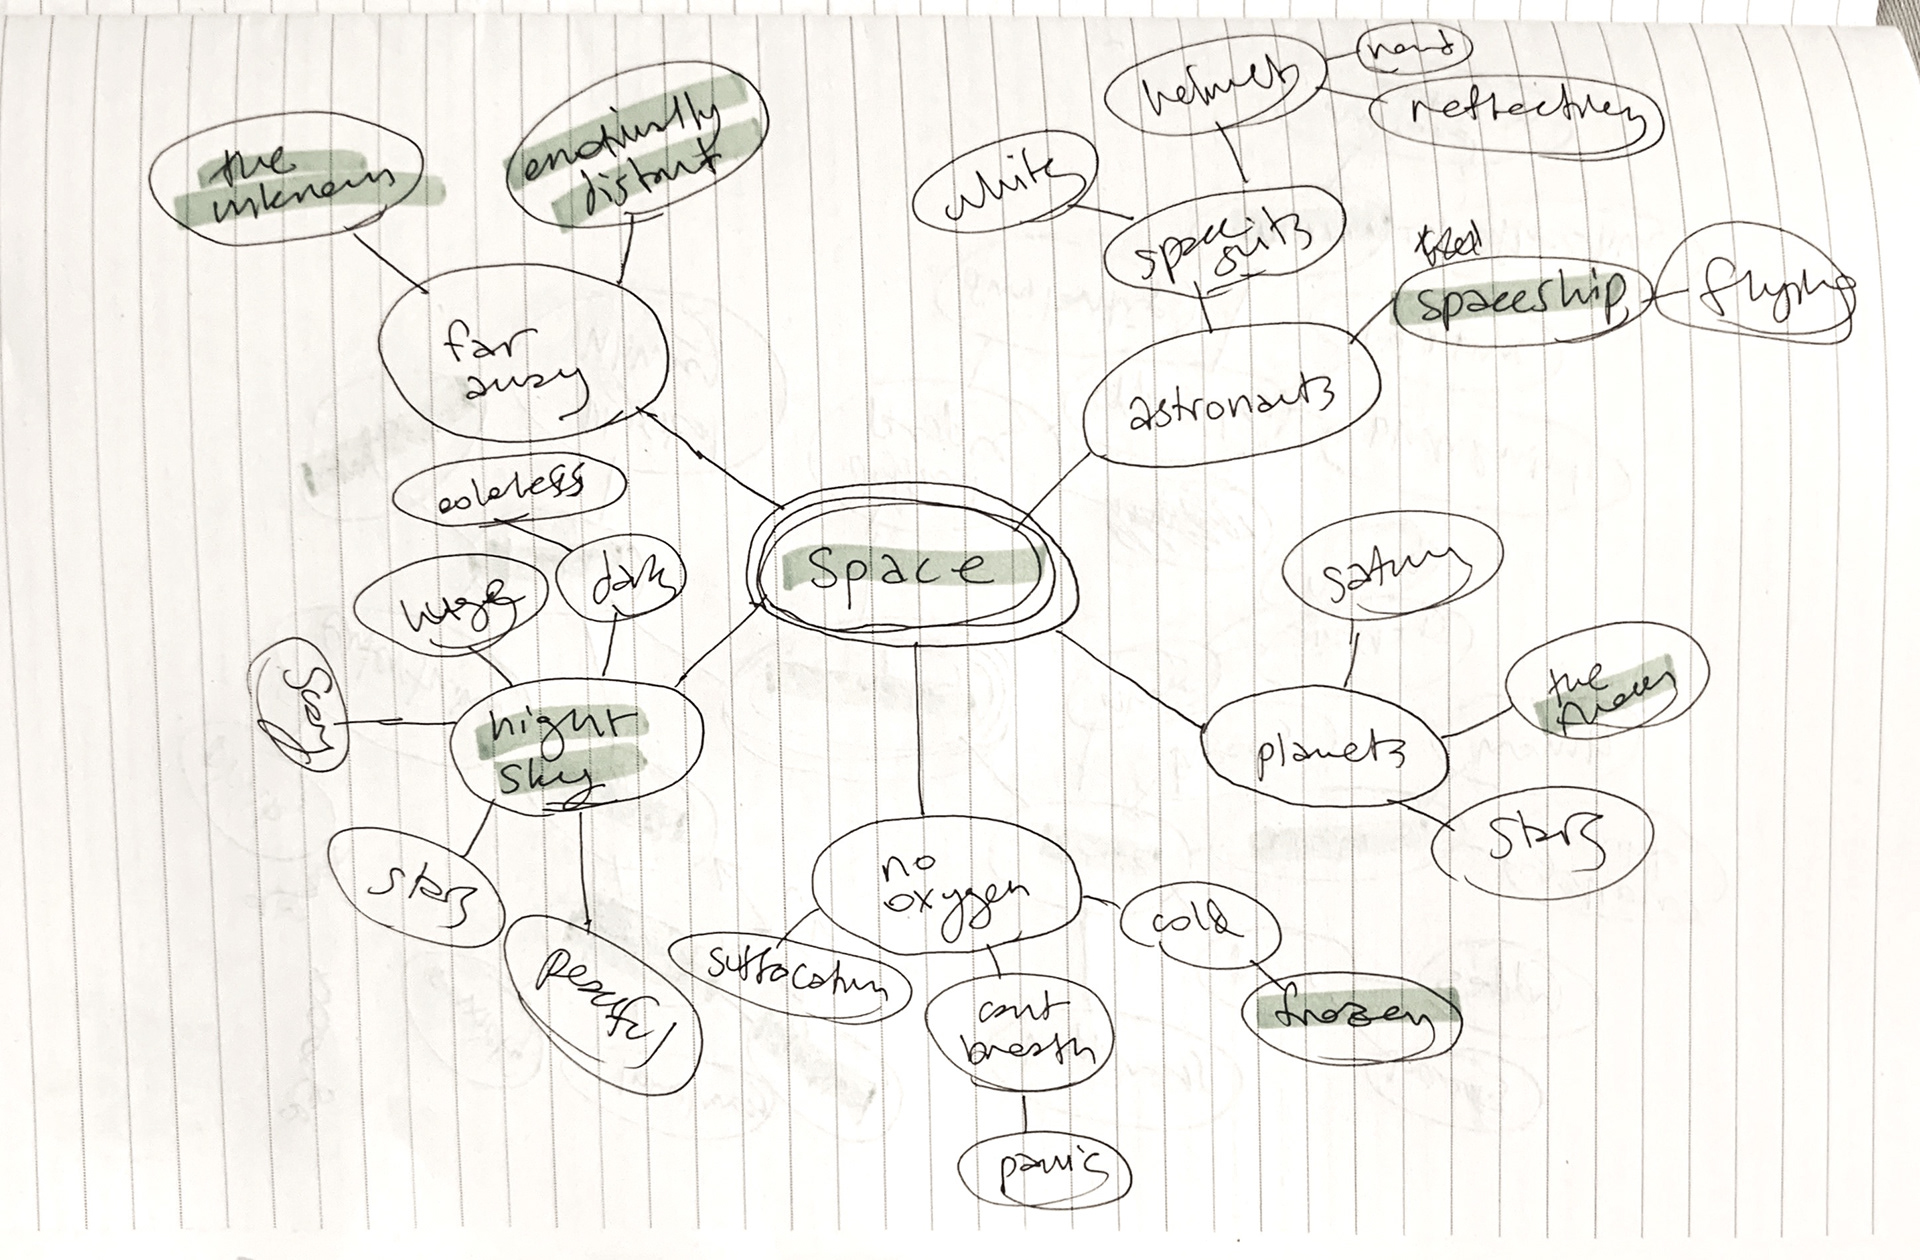 Space
far
away
the
unknown
emotionally
distant
astronauts
space
suits
white
helmet
hard
reflective
spaceship
flying
planets
saturn
the
moon
stars
no
oxygen
suffocation
cant
breath
panic
cold
frozen
night
sky
dark
colorless
huge
scary
stars
peaceful